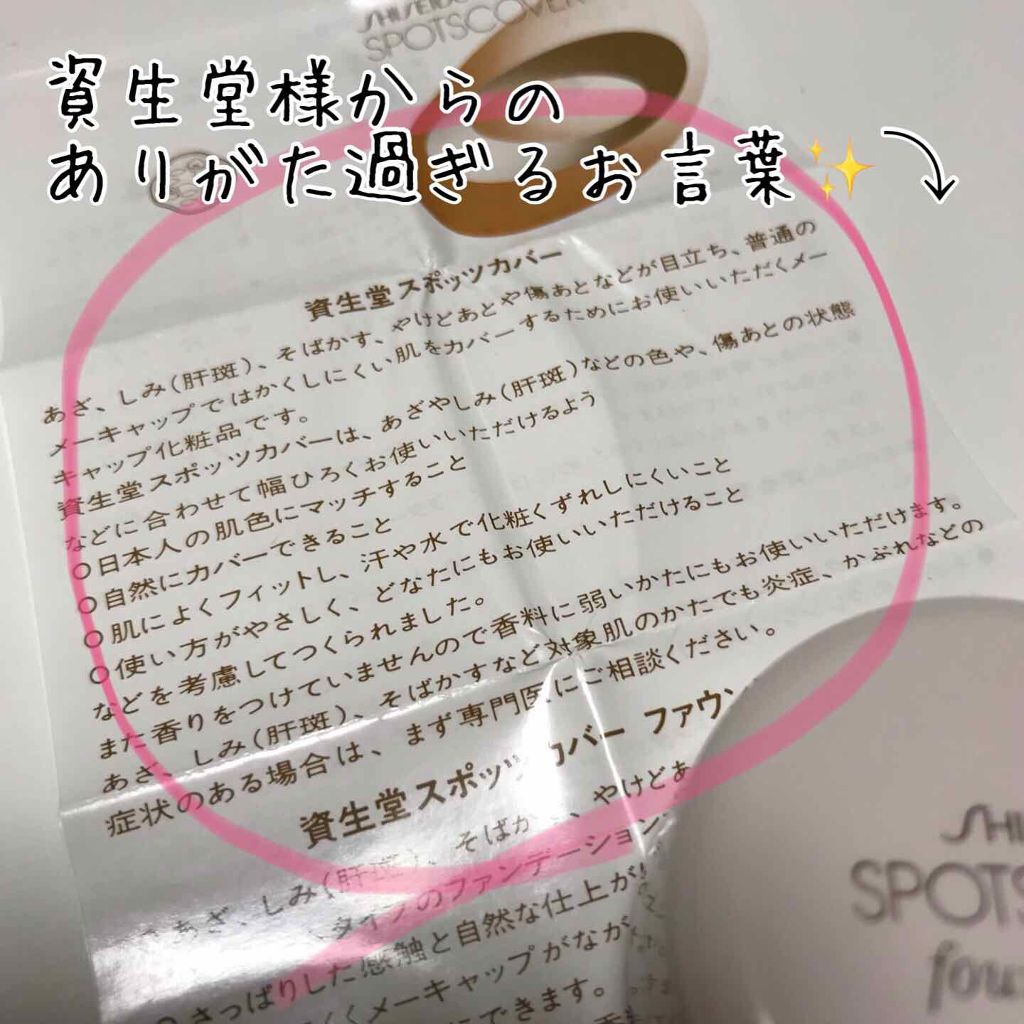 SPOTSCOVER
資生堂様からの
ありがた過ぎるお言葉✨
資生堂スポッツカバー
あざ、しみ(肝斑)、そばかす、やけどあとや傷あとなどが目立ち、普通の
メーキャップではかくしにくい肌をカバーするためにお使いいただくメー
キャップ化粧品です。
資生堂スポッツカバーは、あざやしみ(肝斑)などの色や、傷あとの状態
などに合わせて幅ひろくお使いいただけるよう
○日本人の肌色にマッチすること
○自然にカバーできること
○肌によくフィットし、汗や水で化粧くずれしにくいこと
○使い方がやさしく、どなたにもお使いいただけること
などを考慮してつくられました。
また香りをつけていませんので香料に弱いかたにもお使いいただけます。
あざ、しみ(肝斑)、そばかすなど対象肌のかたでも炎症、かぶれなどの
症状のある場合は、まず専門医にご相談ください。
資生堂スポッツカバー ファウン
あざ、しみ(肝斑)、そばか、やけどあ
タイプのファンデーション
○さっぱりした感触と自然な仕上が
くメーキャップがなが
にできます。
SHI
SPOTS
fou